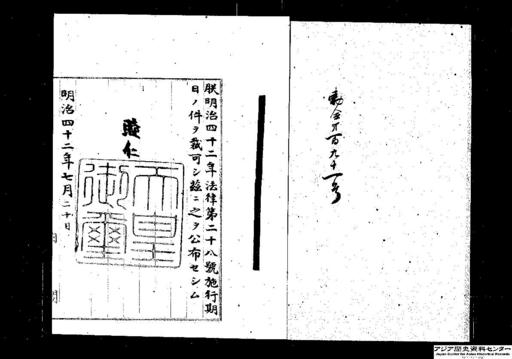 勅令第百九十一号
朕明治四十二年法律第二十八號施行期
日ノ件ヲ裁可シ茲ニ之ヲ公布セシム
睦仁
天皇
御璽
明治四十二年七月二十日
アジア歴史資料センター
Japan Center for Asian Historical Records